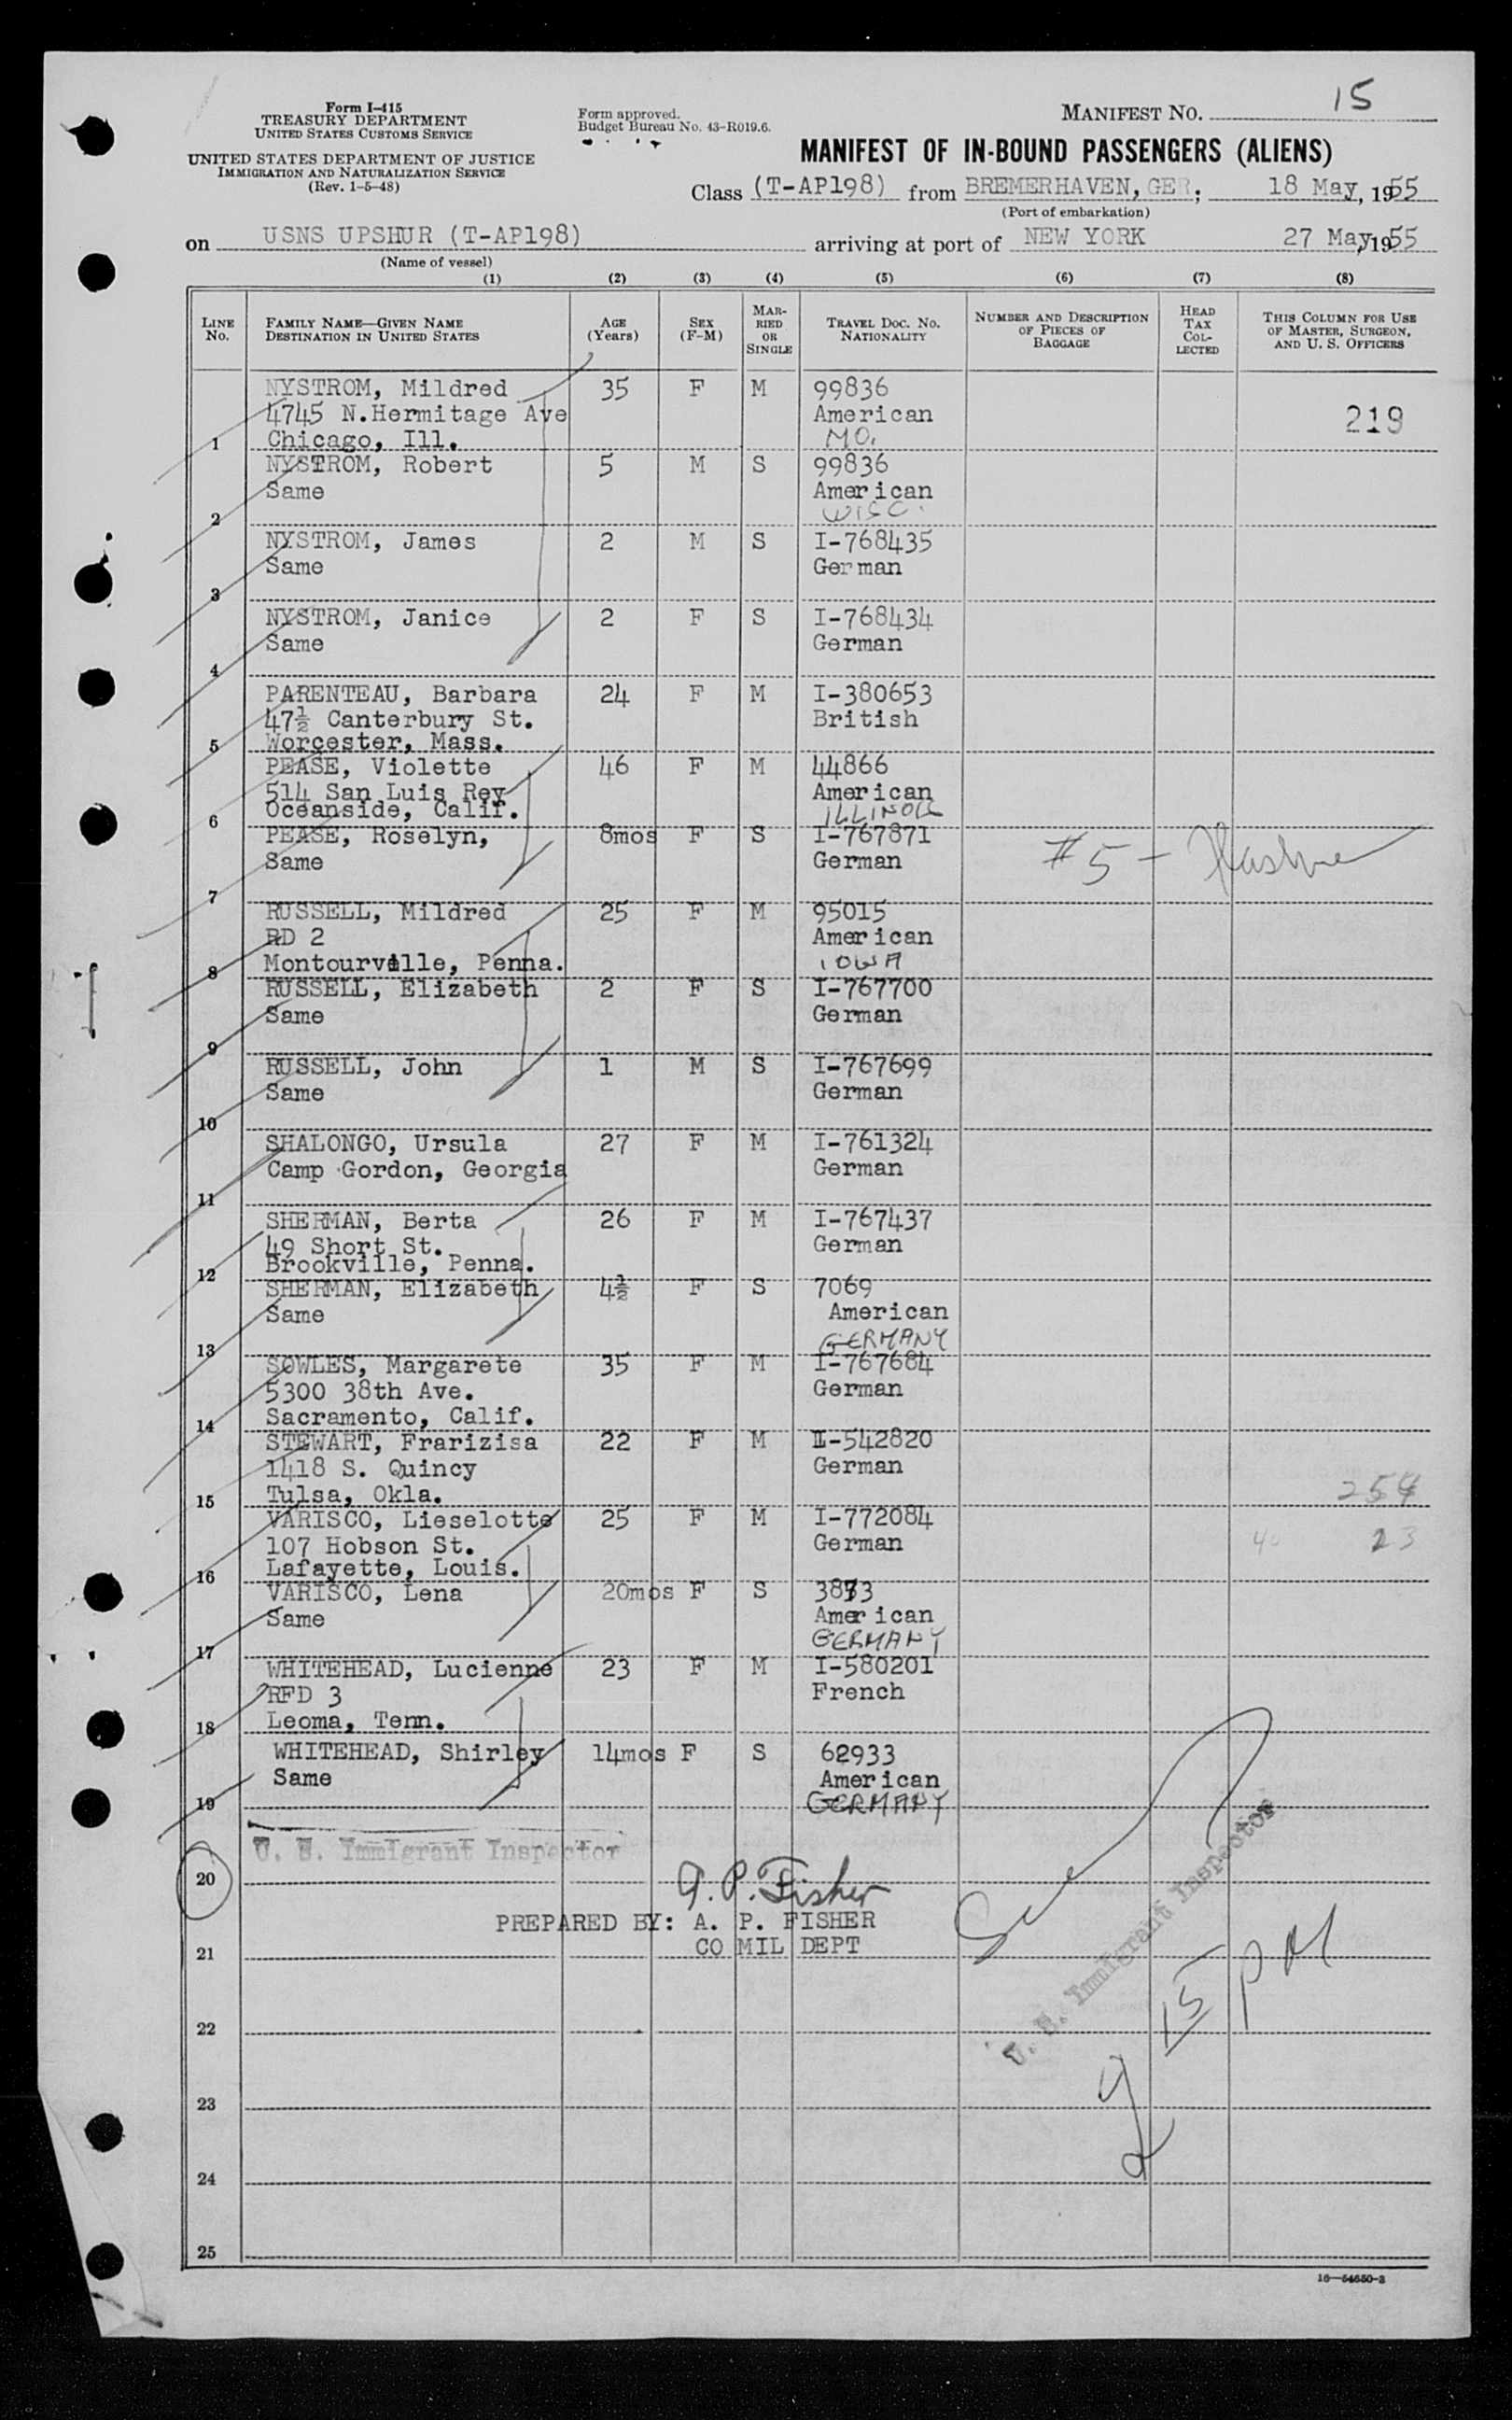 Form I-415
TREASURY DEPARTMENT
UNITED STATES CUSTOMS SERVICE
UNITED STATES DEPARTMENT OF JUSTICE
IMMIGRATION AND NATURALIZATION SERVICE
(Rev. 1-5-48)
Form approved.
Budget Bureau No. 43-R019.6.
MANIFEST NO. 15
MANIFEST OF IN-BOUND PASSENGERS (ALIENS)
Class (T-AP198) from BREMERHAVEN, GER; 18 May, 1955
(Port of embarkation)
on USNS UPSHUR (T-AP198) arriving at port of NEW YORK 27 May, 1955
(Name of vessel)
(1) (2) (3) (4) (5) (6) (7) (8)
LINE No. FAMILY NAME—GIVEN NAME DESTINATION IN UNITED STATES AGE (Years) SEX (F-M) MARRIED OR SINGLE TRAVEL DOC. NO. NATIONALITY NUMBER AND DESCRIPTION OF PIECES OF BAGGAGE HEAD TAX COLLECTED THIS COLUMN FOR USE OF MASTER, SURGEON, AND U. S. OFFICERS
NYSTROM, Mildred 35 F M 99836
4745 N.Hermitage Ave American 219
1 Chicago, Ill. MO.
NYSTROM, Robert 5 M S 99836
Same American
2 WISC.
NYSTROM, James 2 M S I-768435
Same German
3
NYSTROM, Janice 2 F S I-768434
Same German
4
PARENTEAU, Barbara 24 F M I-380653
47½ Canterbury St. British
5 Worcester, Mass.
PEASE, Violette 46 F M 44866
514 San Luis Rey American
6 Oceanside, Calif. ILLINOIS
PEASE, Roselyn, 8mos F S I-767871
Same German #5 -
7
RUSSELL, Mildred 25 F M 95015
RD 2 American
8 Montourville, Penna. IOWA
RUSSELL, Elizabeth 2 F S I-767700
Same German
9
RUSSELL, John 1 M S I-767699
Same German
10
SHALONGO, Ursula 27 F M I-761324
Camp Gordon, Georgia German
11
SHERMAN, Berta 26 F M I-767437
49 Short St. German
12 Brookville, Penna.
SHERMAN, Elizabeth 4½ F S 7069
Same American
13 GERMANY
SOWLES, Margarete 35 F M I-767684
5300 38th Ave. German
14 Sacramento, Calif.
STEWART, Frarizisa 22 F M I-542820
1418 S. Quincy German
15 Tulsa, Okla. 254
VARISCO, Lieselotte 25 F M I-772084
107 Hobson St. German 23
16 Lafayette, Louis.
VARISCO, Lena 20mos F S 3873
Same American
17 GERMANY
WHITEHEAD, Lucienne 23 F M I-580201
RFD 3 French
18 Leoma, Tenn.
WHITEHEAD, Shirley 14mos F S 62933
Same American
19 GERMANY
U. S. Immigrant Inspector
20 A. P. Fisher
PREPARED BY: A. P. FISHER
21 CO MIL DEPT
U. S. Immigrant Inspector
15 PM
22
23
24
25
16—54650-2